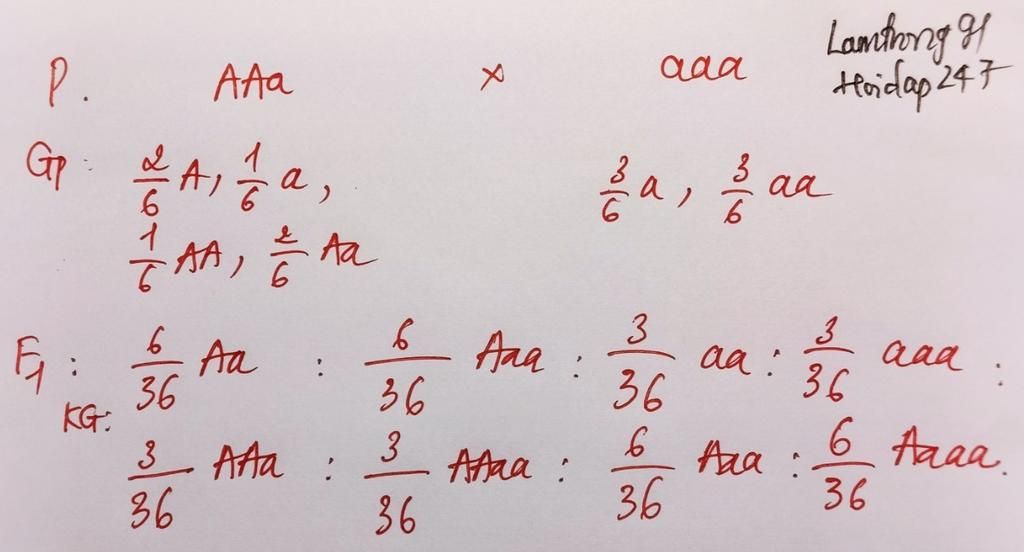 Lamthong91
Hoidap247
P. AAa × aaa
Gp: 2/6 A, 1/6 a, 3/6 a, 3/6 aa
1/6 AA, 2/6 Aa
F1: 6/36 Aa : 6/36 Aaa : 3/36 aa : 3/36 aaa :
KG: 3/36 AAa : 3/36 AAaa : 6/36 Aaa : 6/36 Aaaa.